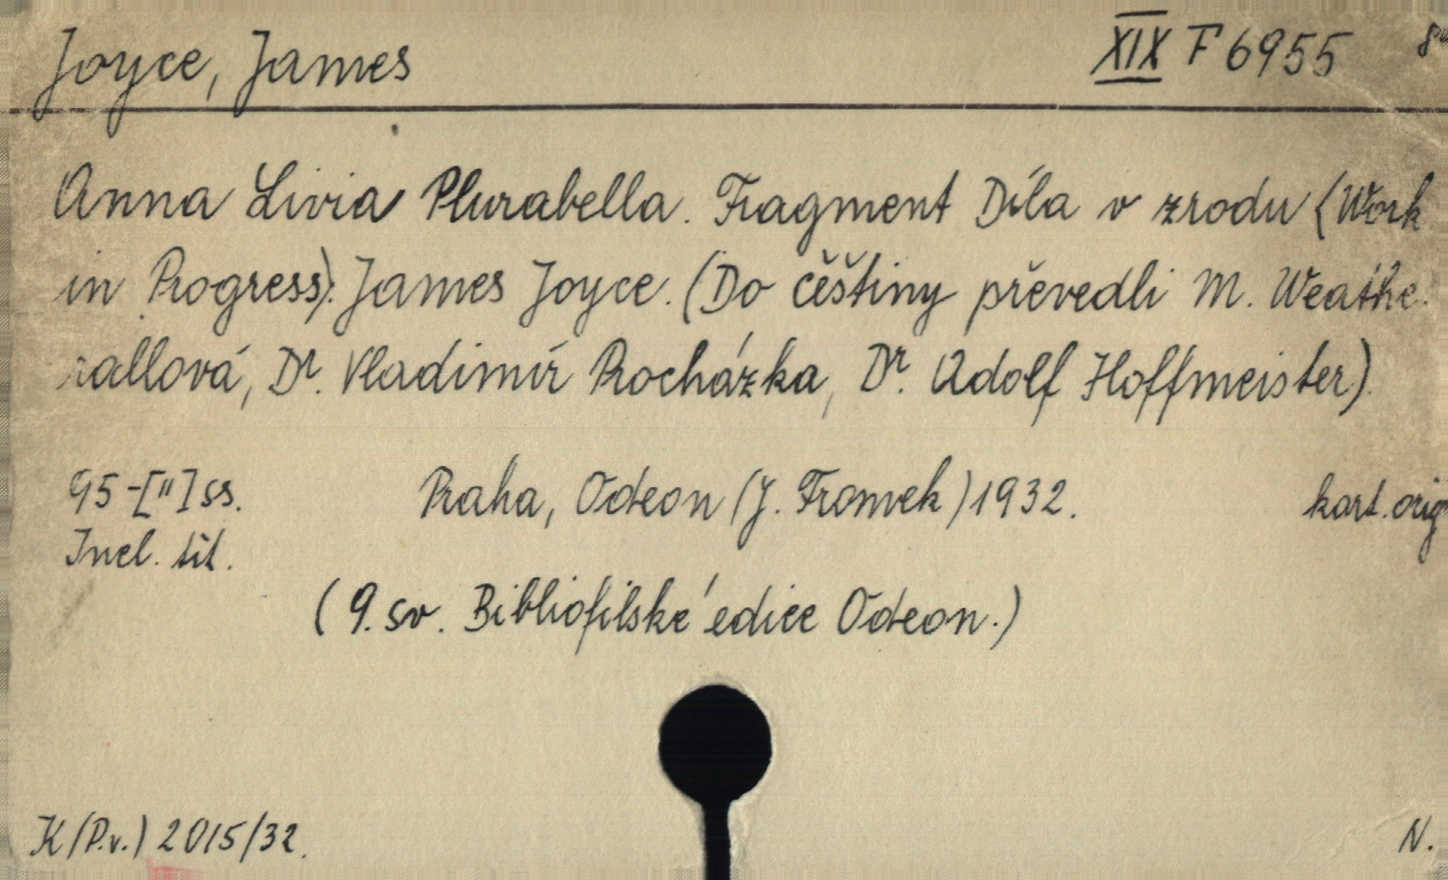 Joyce, James XIX F 6955
Anna Livia Plurabella. Fragment Díla v zrodu (Work
in Progress). James Joyce. (Do čěštiny převedli M. Weathe-
rallová, Dr. Vladimír Procházka, Dr. Adolf Hoffmeister).
95-["] ss. Praha, Odeon (J. Fromek) 1932. kart. orig
Incl. tit.
(9. sv. Bibliofilské edice Odeon.)
K (P.v.) 2015/32.
N.